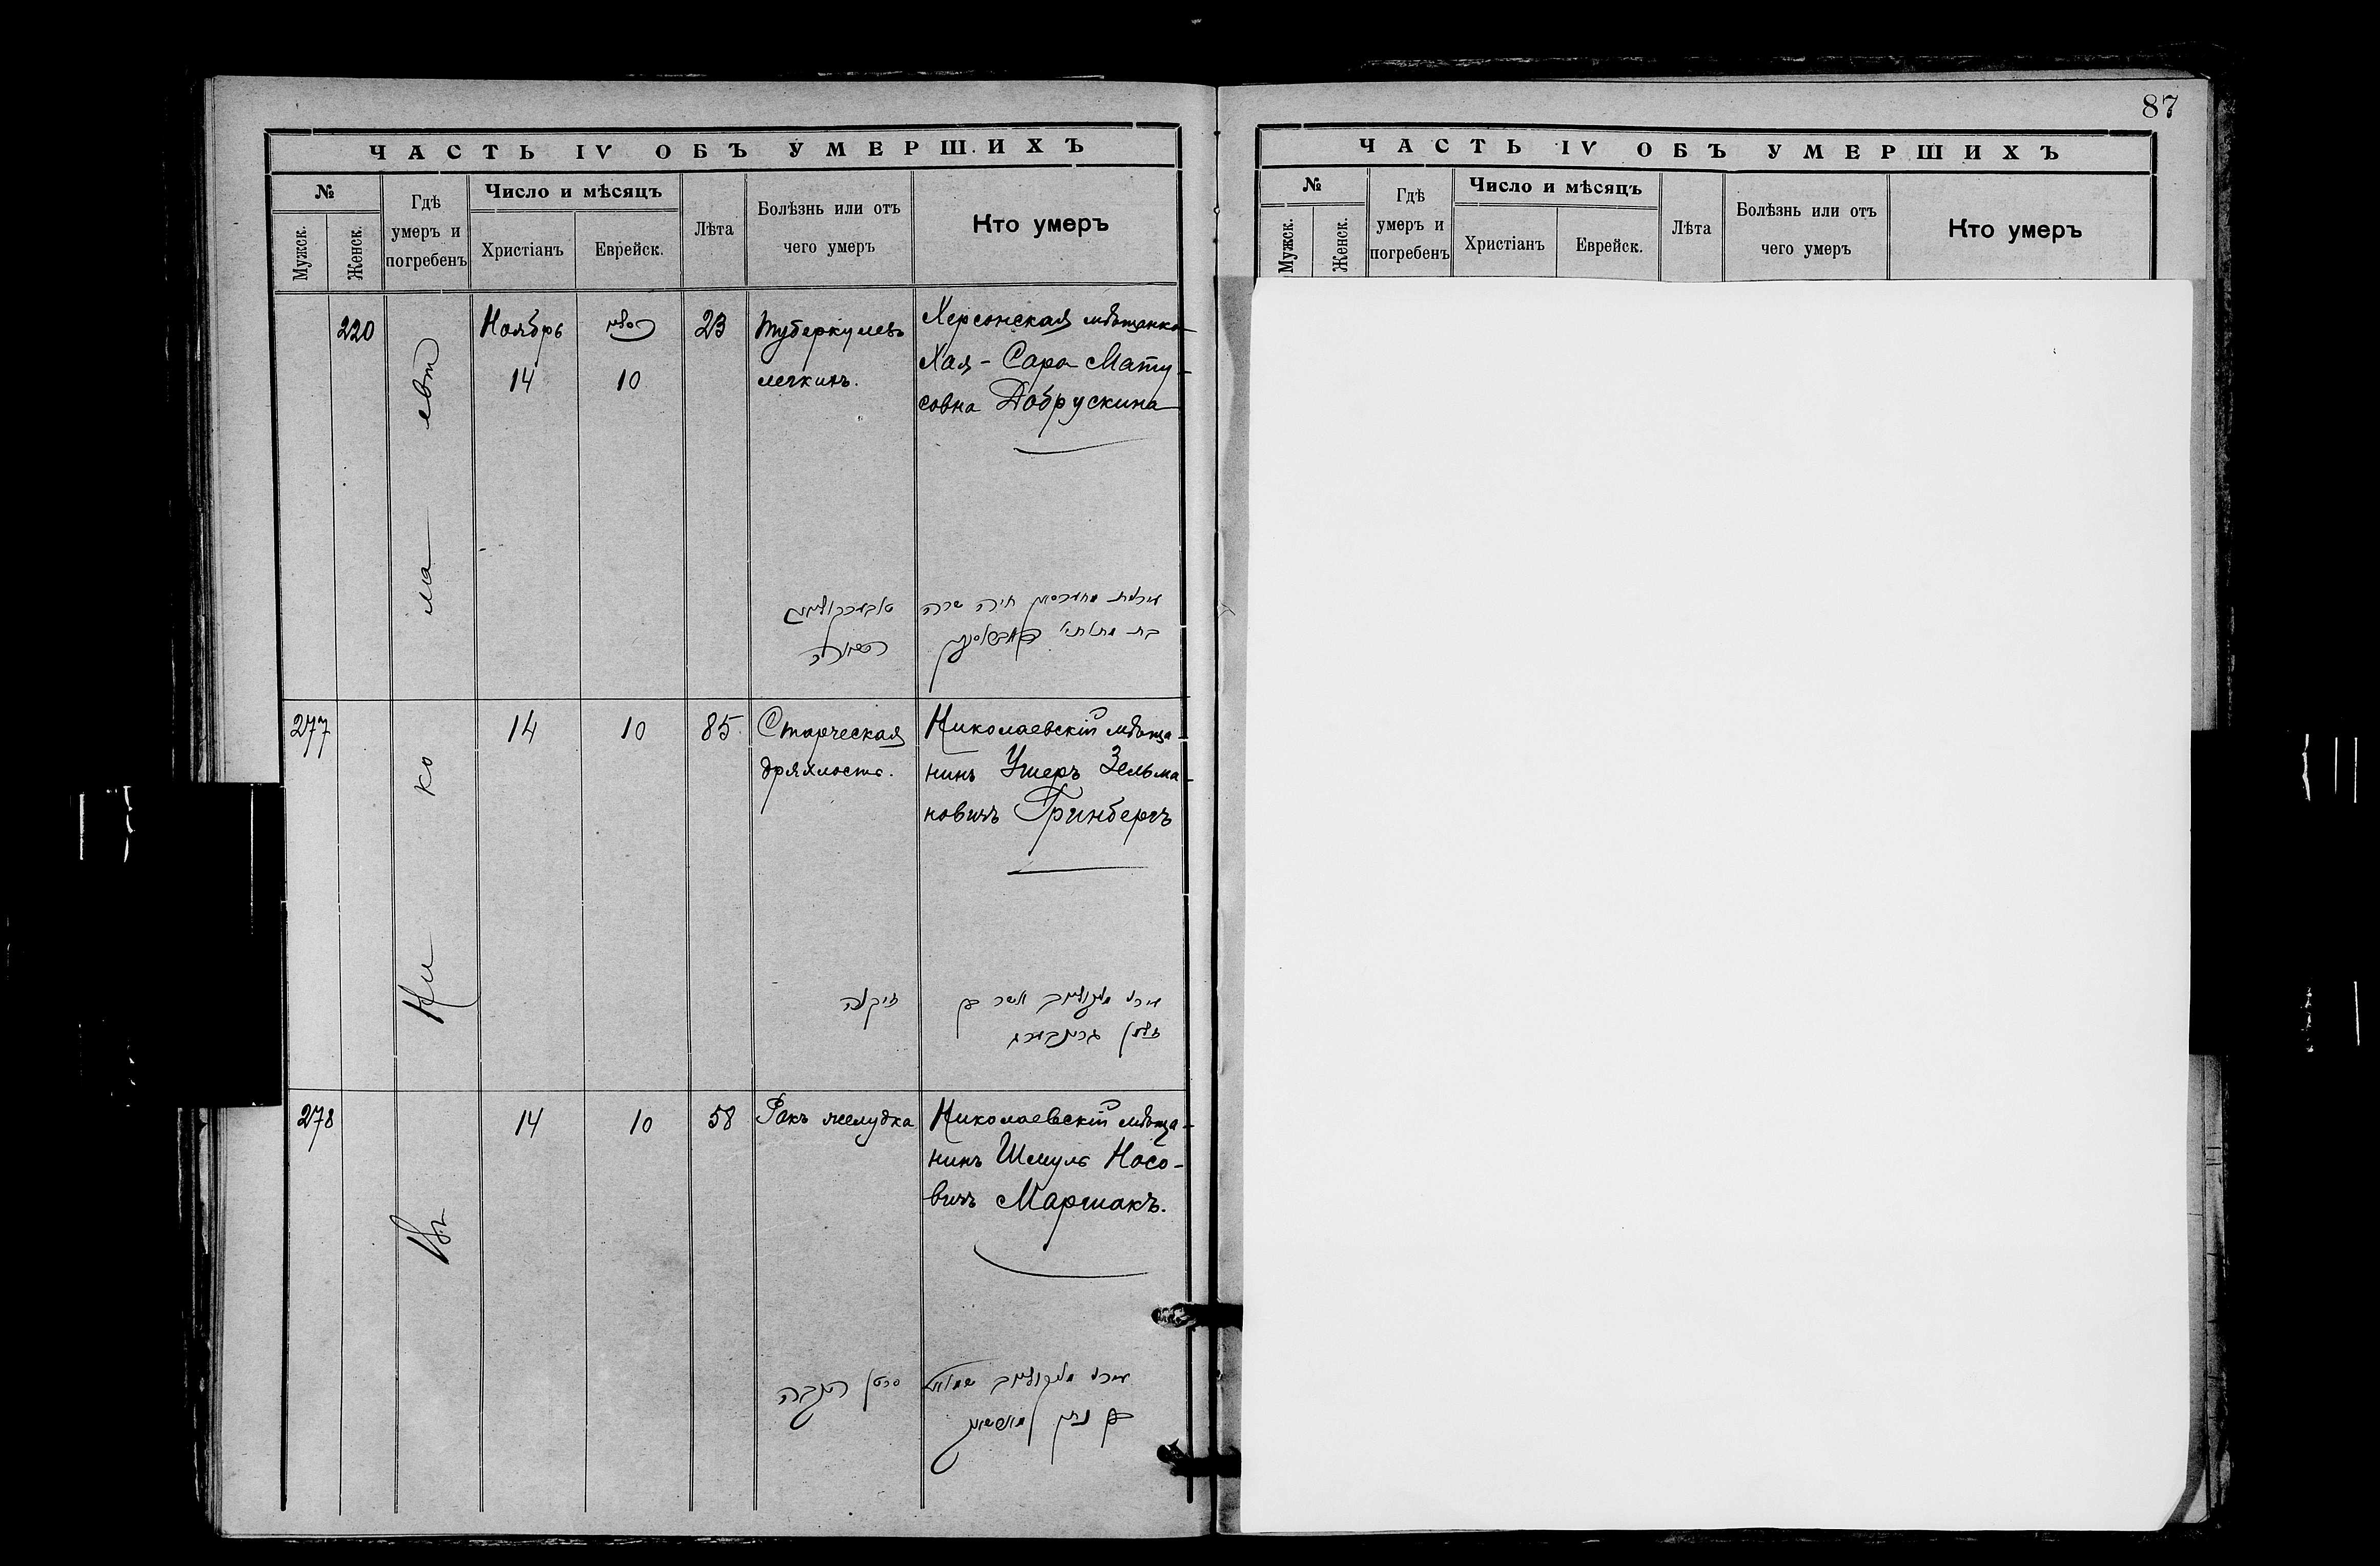 87
ЧАСТЬ IV ОБЪ УМЕРШИХЪ
№
Мужск.
Женск.
Гдѣ
умеръ и
погребенъ
Число и мѣсяцъ
Христіанъ
Еврейск.
Лѣта
Болѣзнь или отъ
чего умеръ
Кто умеръ
Въ Николаевѣ
220
Ноябрь
14
כסלו
10
23
Туберкулезъ
легкихъ.
Херсонская мѣщанка
Хая - Сара Мату-
совна Добрускина
חיה שרה
בת
277
14
10
85
Старческая
дряхлость.
Николаевскій мѣща-
нинъ Ушеръ Зельма-
новичъ Гринбергъ
זיקנה
אשר בן
זלמן גרינבערג
278
14
10
58
Ракъ желудка
Николаевскій мѣща-
нинъ Шмуль Носо-
вичъ Маршакъ.
סרטן הקבה
שמואל
בן נתן מארשאק
ЧАСТЬ IV ОБЪ УМЕРШИХЪ
№
Мужск.
Женск.
Гдѣ
умеръ и
погребенъ
Число и мѣсяцъ
Христіанъ
Еврейск.
Лѣта
Болѣзнь или отъ
чего умеръ
Кто умеръ